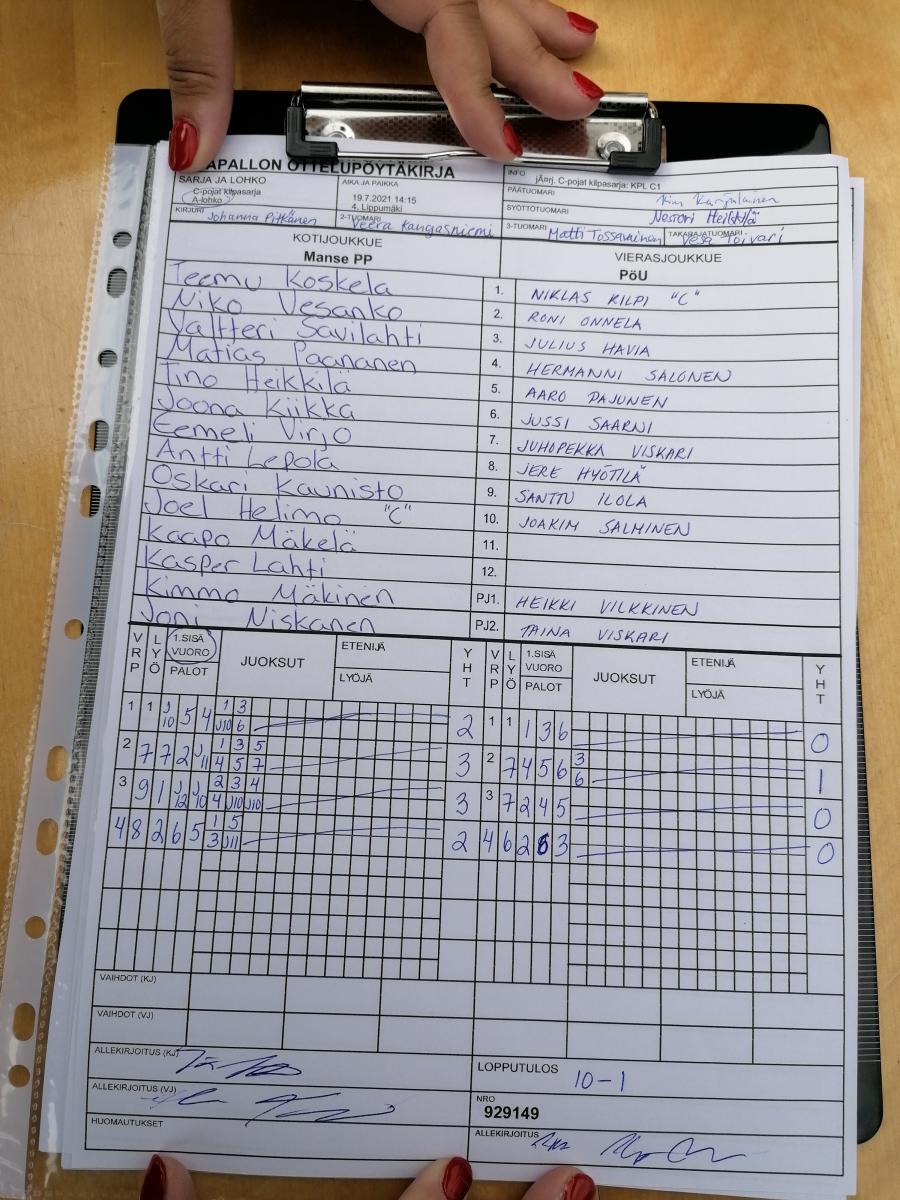 APALLON OTTELUPÖYTÄKIRJA
SARJA JA LOHKO
C-pojat kilpasarja
A-lohko
AIKA JA PAIKKA
19.7.2021 14:15
4. Lippumäki
INFO
jÄarj. C-pojat kilpasarja: KPL C1
PÄÄTUOMARI
KIRJURI Johanna Pitkänen
2-TUOMARI Veera Kangasniemi
SYÖTTÖTUOMARI
3-TUOMARI Matti Tossavainen
TAKARAJATUOMARI Vesa Toivari
KOTIJOUKKUE
Manse PP
VIERASJOUKKUE
PöU
Teemu Koskela 1. NIKLAS KILPI "C"
Niko Vesanko 2. RONI ONNELA
Valtteri Savilahti 3. JULIUS HAVIA
Matias Paananen 4. HERMANNI SALONEN
Tino Heikkilä 5. AARO PAJUNEN
Joona Kiikka 6. JUSSI SAARNI
Eemeli Virjo 7. JUHOPEKKA VISKARI
Antti Lepola 8. JERE HYÖTILÄ
Oskari Kaunisto 9. SANTTU ILOLA
Joel Helimo "C" 10. JOAKIM SALMINEN
Kaapo Mäkelä 11.
Kasper Lahti 12.
Kimmo Mäkinen PJ1. HEIKKI VILKKINEN
Joni Niskanen PJ2. TAINA VISKARI
VRP LYÖ 1.SISÄ VUORO PALOT JUOKSUT ETENIJÄ LYÖJÄ YHT VRP LYÖ 1.SISÄ VUORO PALOT JUOKSUT ETENIJÄ LYÖJÄ YHT
1 1 J10 5 4 1 3 2 1 1 1 3 6 0
J10 6
2 7 7 2 J11 1 3 5 3 2 7 4 5 6 3 1
4 5 7 6
3 9 1 J12 J10 2 3 4 3 3 7 2 4 5 0
4 J10 J10
4 8 2 6 5 1 5 2 4 6 2 3 0
3 J11
VAIHDOT (KJ)
VAIHDOT (VJ)
ALLEKIRJOITUS (KJ)
ALLEKIRJOITUS (VJ)
HUOMAUTUKSET
LOPPUTULOS
10-1
NRO
929149
ALLEKIRJOITUS